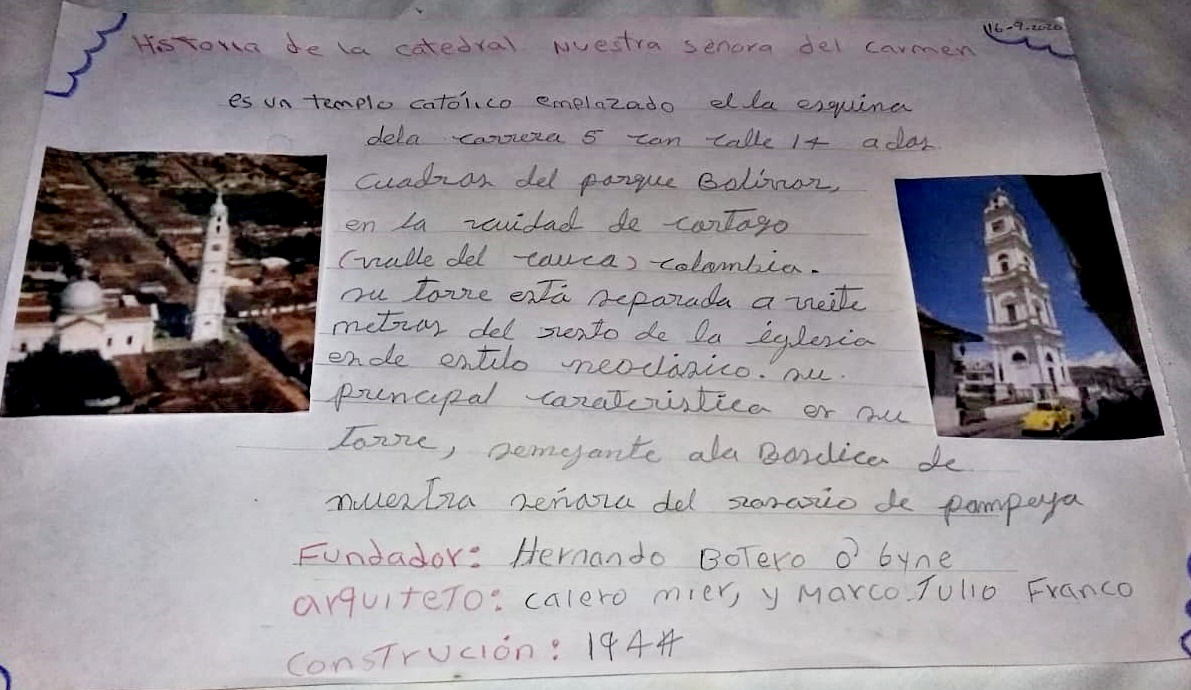 Historia de la catedral Nuestra señora del carmen
16-9-2020
es un templo católico emplazado el la esquina
dela carrera 5 con calle 14 a dos
cuadras del parque Bolívar,
en la ciuidad de cartago
(valle del cauca) colombia.
su torre está separada a veite
metros del resto de la églesia
es de estilo neoclásico. su
principal carateristica es su
torre, semejante ala Basilica de
nuestra señora del rosario de pompeya
Fundador: Hernando Botero o' byne
arquiteto: calero mier, y Marco Julio Franco
construción: 1944